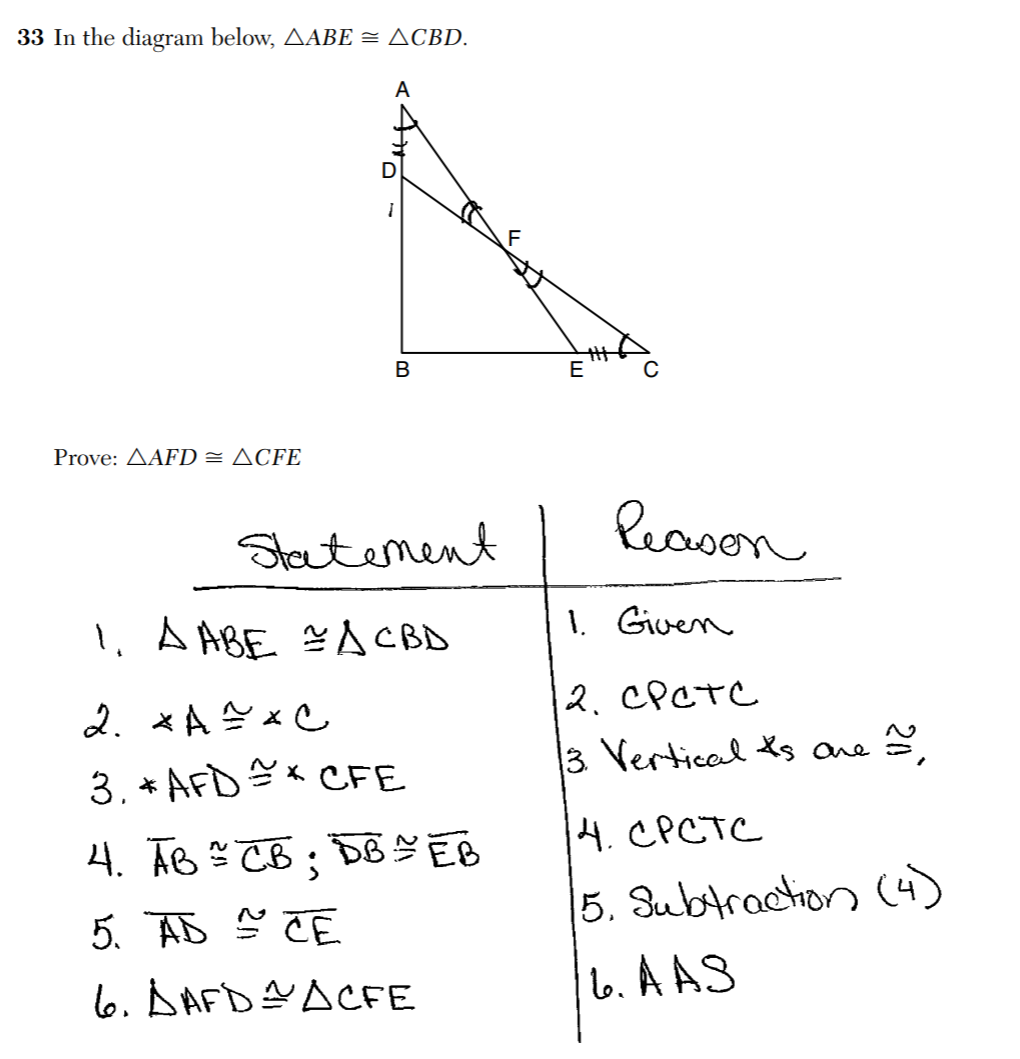 33 In the diagram below, △ABE ≅ △CBD.
A
D
F
B
E
C
Prove: △AFD ≅ △CFE
Statement Reason
1. △ABE ≅ △CBD 1. Given
2. ∡A ≅ ∡C 2. CPCTC
3. ∡AFD ≅ ∡CFE 3. Vertical ∡s are ≅.
4. A̅B̅ ≅ C̅B̅ ; D̅B̅ ≅ E̅B̅ 4. CPCTC
5. A̅D̅ ≅ C̅E̅ 5. Subtraction (4)
6. △AFD ≅ △CFE 6. AAS